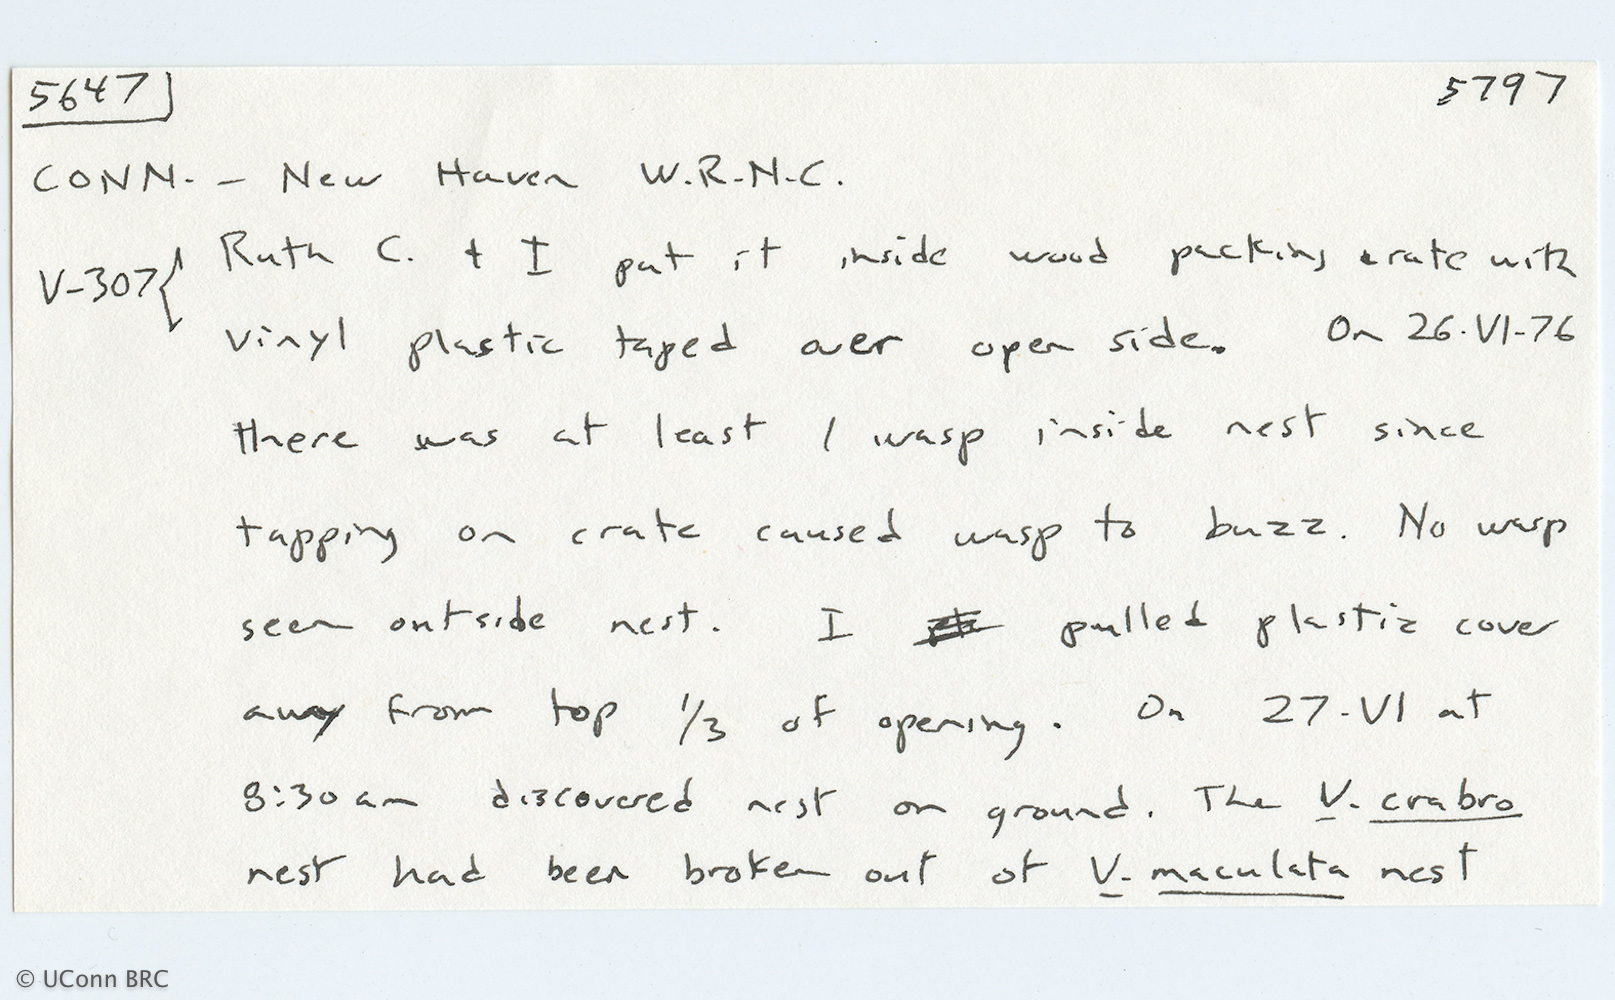 5647 5797
CONN. - New Haven W.R.N.C.
V-307 { Ruth C. + I put it inside wood packing crate with
vinyl plastic taped over open side. On 26-VI-76
there was at least 1 wasp inside nest since
tapping on crate caused wasp to buzz. No wasp
seen outside nest. I pulled plastic cover
away from top 1/3 of opening. On 27-VI at
8:30 am discovered nest on ground. The V. crabro
nest had been broken out of V. maculata nest
© UConn BRC